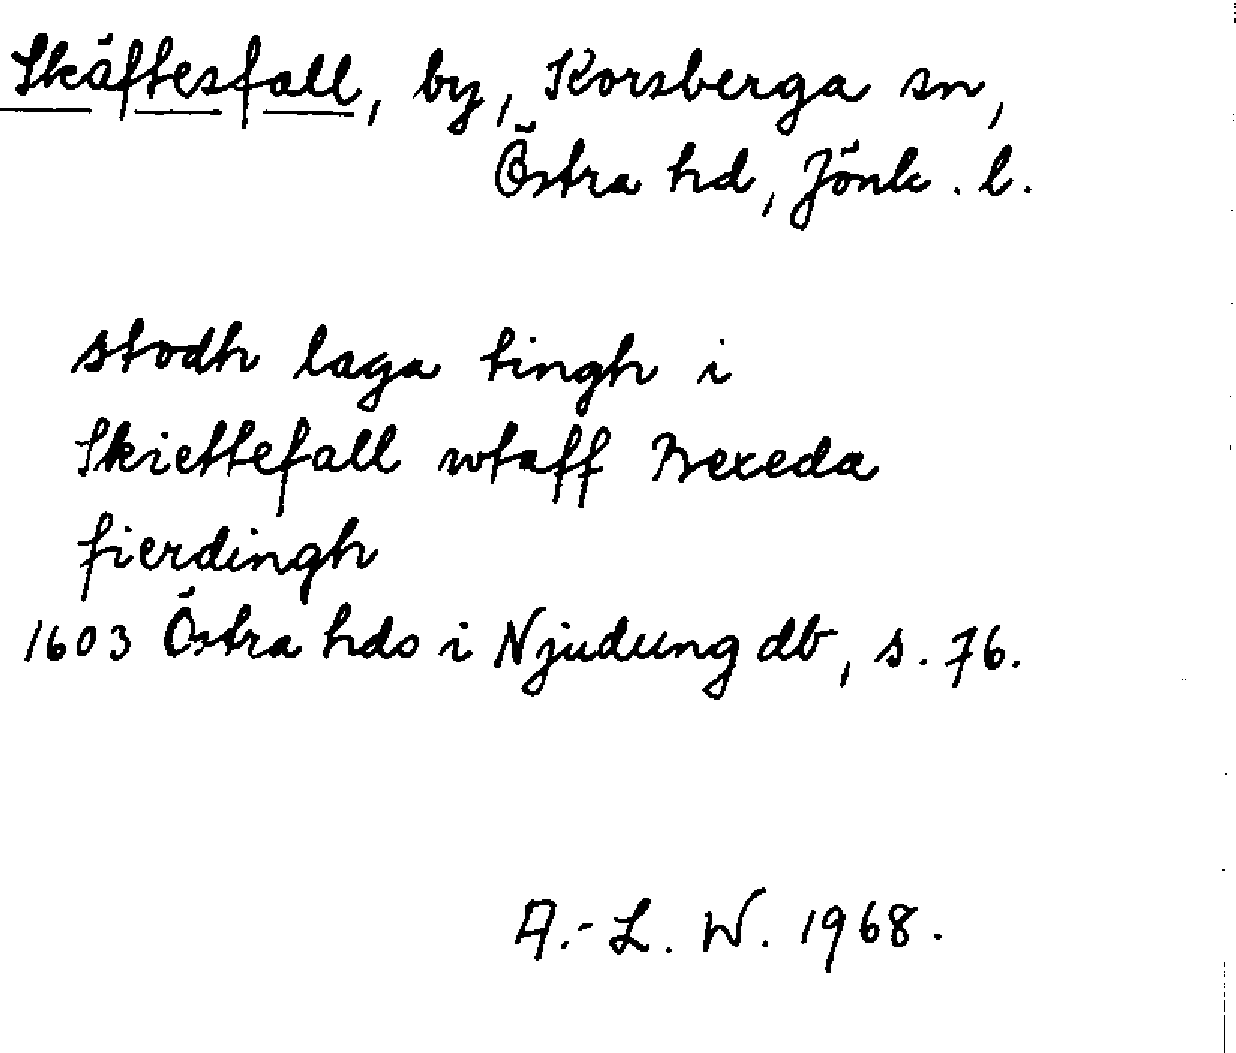 Skäftesfall, by, Korsberga sn,
Östra hd, Jönk. l.
stodh laga tingh i
Skiettefall wtaff Bexeda
fierdingh
1603 Östra hds i Njudung db, s. 76.
A.-L. W. 1968.